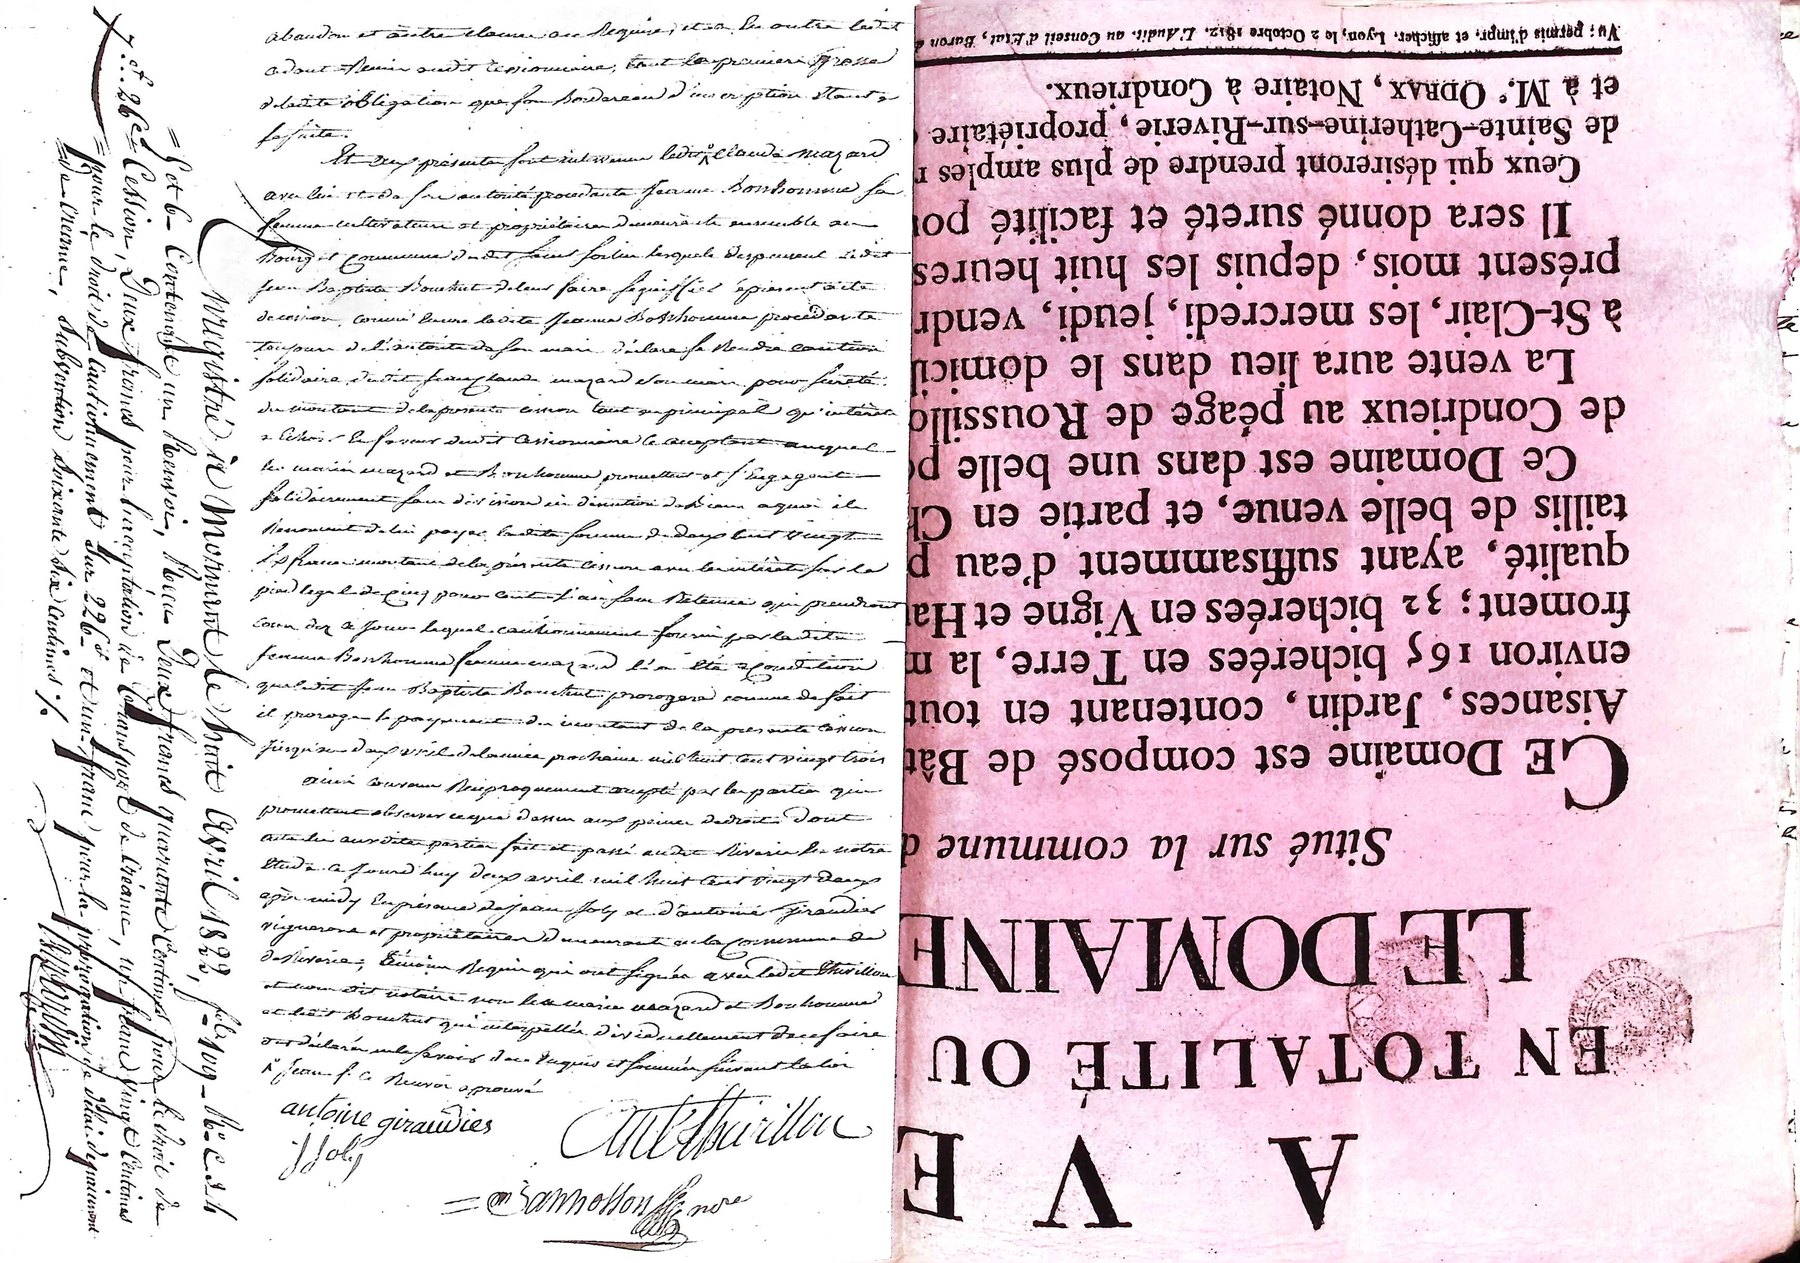 abandon et autre clause au Requise, et a en outre ledit
cedant Remis audit Cessionnaire, tant la premiere Grosse
deladite obligation que son Bordereau d'inscription étant a
la suite.
Et aux présente sont intervenu ledit Claude mazard
avec lui et de son autorité procedante Jeanne Bonhomme sa
femme cultivateurs et propriétaires demeurants ensemble au
Bourg et commune dudit saint lesquels dispensent ledit
Jean Baptiste Bouchut deleur faire signiffier le présent acte
de cession, comme encore ladite Jeanne Bonhomme procedante
toujours de l'autorité de son mari déclare se Rendre caution
solidaire dudit Jean Claude mazard son mari pour sureté
du montant de la présente cession tant en principal qu'intérêts
a échoir En faveur dudit Cessionnaire ce acceptant auquel
les mariés mazard et Bonhomme promettent et s'Engagent
solidairement sans division ni discution de Biens a quoi ils
Renoncent de lui payer ladite somme de deux cent vingt
six francs montant de la présente cession avec les intérêts sur le
pied legal de cinq pour cent l'an sans Retenue qui prendront
cours dez ce jour lequel cautionnement fourni par ladite
Jeanne Bonhomme femme mazard l'a été a condition
que ledit Jean Baptiste Bouchut prorogera comme de fait
il proroge le payement du montant de la présente cession
Jusqu'au deux avril de l'année prochaine mil huit cent vingt trois
ainsi convenu Réciproquement accepté par les parties qui
promettent observer ce que dessus aux peines de droit Dont
acte lu auxdites parties fait et passé audit Riverie En notre
Etude ce jourd'huy deux avril mil huit cent vingt deux
après midy En présence de Jean Joly et d'antoine Giraudier
vignerons et propriétaires demeurants en la Commune de
de Riverie, témoins Requis qui ont signé avec ledit Thivillon
et nous dit notaire non les mariés mazard et Bonhomme
et ledit Bouchut qui interpellés individuellement de ce faire
ont déclaré ne le savoir de ce Enquis et sommés suivant la loi
Jean f. ce Renvoi approuvé
antoine giraudier
J Joly
Thivillon
Bannosson nre
Enregistré à Mornant le huit avril 1822, fol. 109
et Contenant un Renvoi, Reçu Deux francs quarante Centimes pour le droit de
Cession, Deux francs pour l'acceptation de transport de Créance, un franc vingt Centimes
pour le droit de Cautionnement sur 226 et un franc pour la prorogation de délai de paiement
de Créance, Subvention soixante six Centimes
A VE
EN TOTALITÉ OU
LE DOMAINE
Situé sur la commune d
CE Domaine est composé de Bât
Aisances, Jardin, contenant en tout
environ 165 bicherées en Terre, la m
froment; 32 bicherées en Vigne et Ha
qualité, ayant suffisamment d'eau p
taillis de belle venue, et partie en Ch
Ce Domaine est dans une belle po
de Condrieux au péage de Roussillo
La vente aura lieu dans le domicil
à St-Clair, les mercredi, jeudi, vendr
présent mois, depuis les huit heures
Il sera donné sureté et facilité pou
Ceux qui désireront prendre de plus amples r
de Sainte-Catherine-sur-Riverie, propriétaire
et à M.e ODRAX, Notaire à Condrieux.
Vu; permis d'impr. et afficher. Lyon, le 2 Octobre 1812. L'Audit. au Conseil d'Etat, Baron d